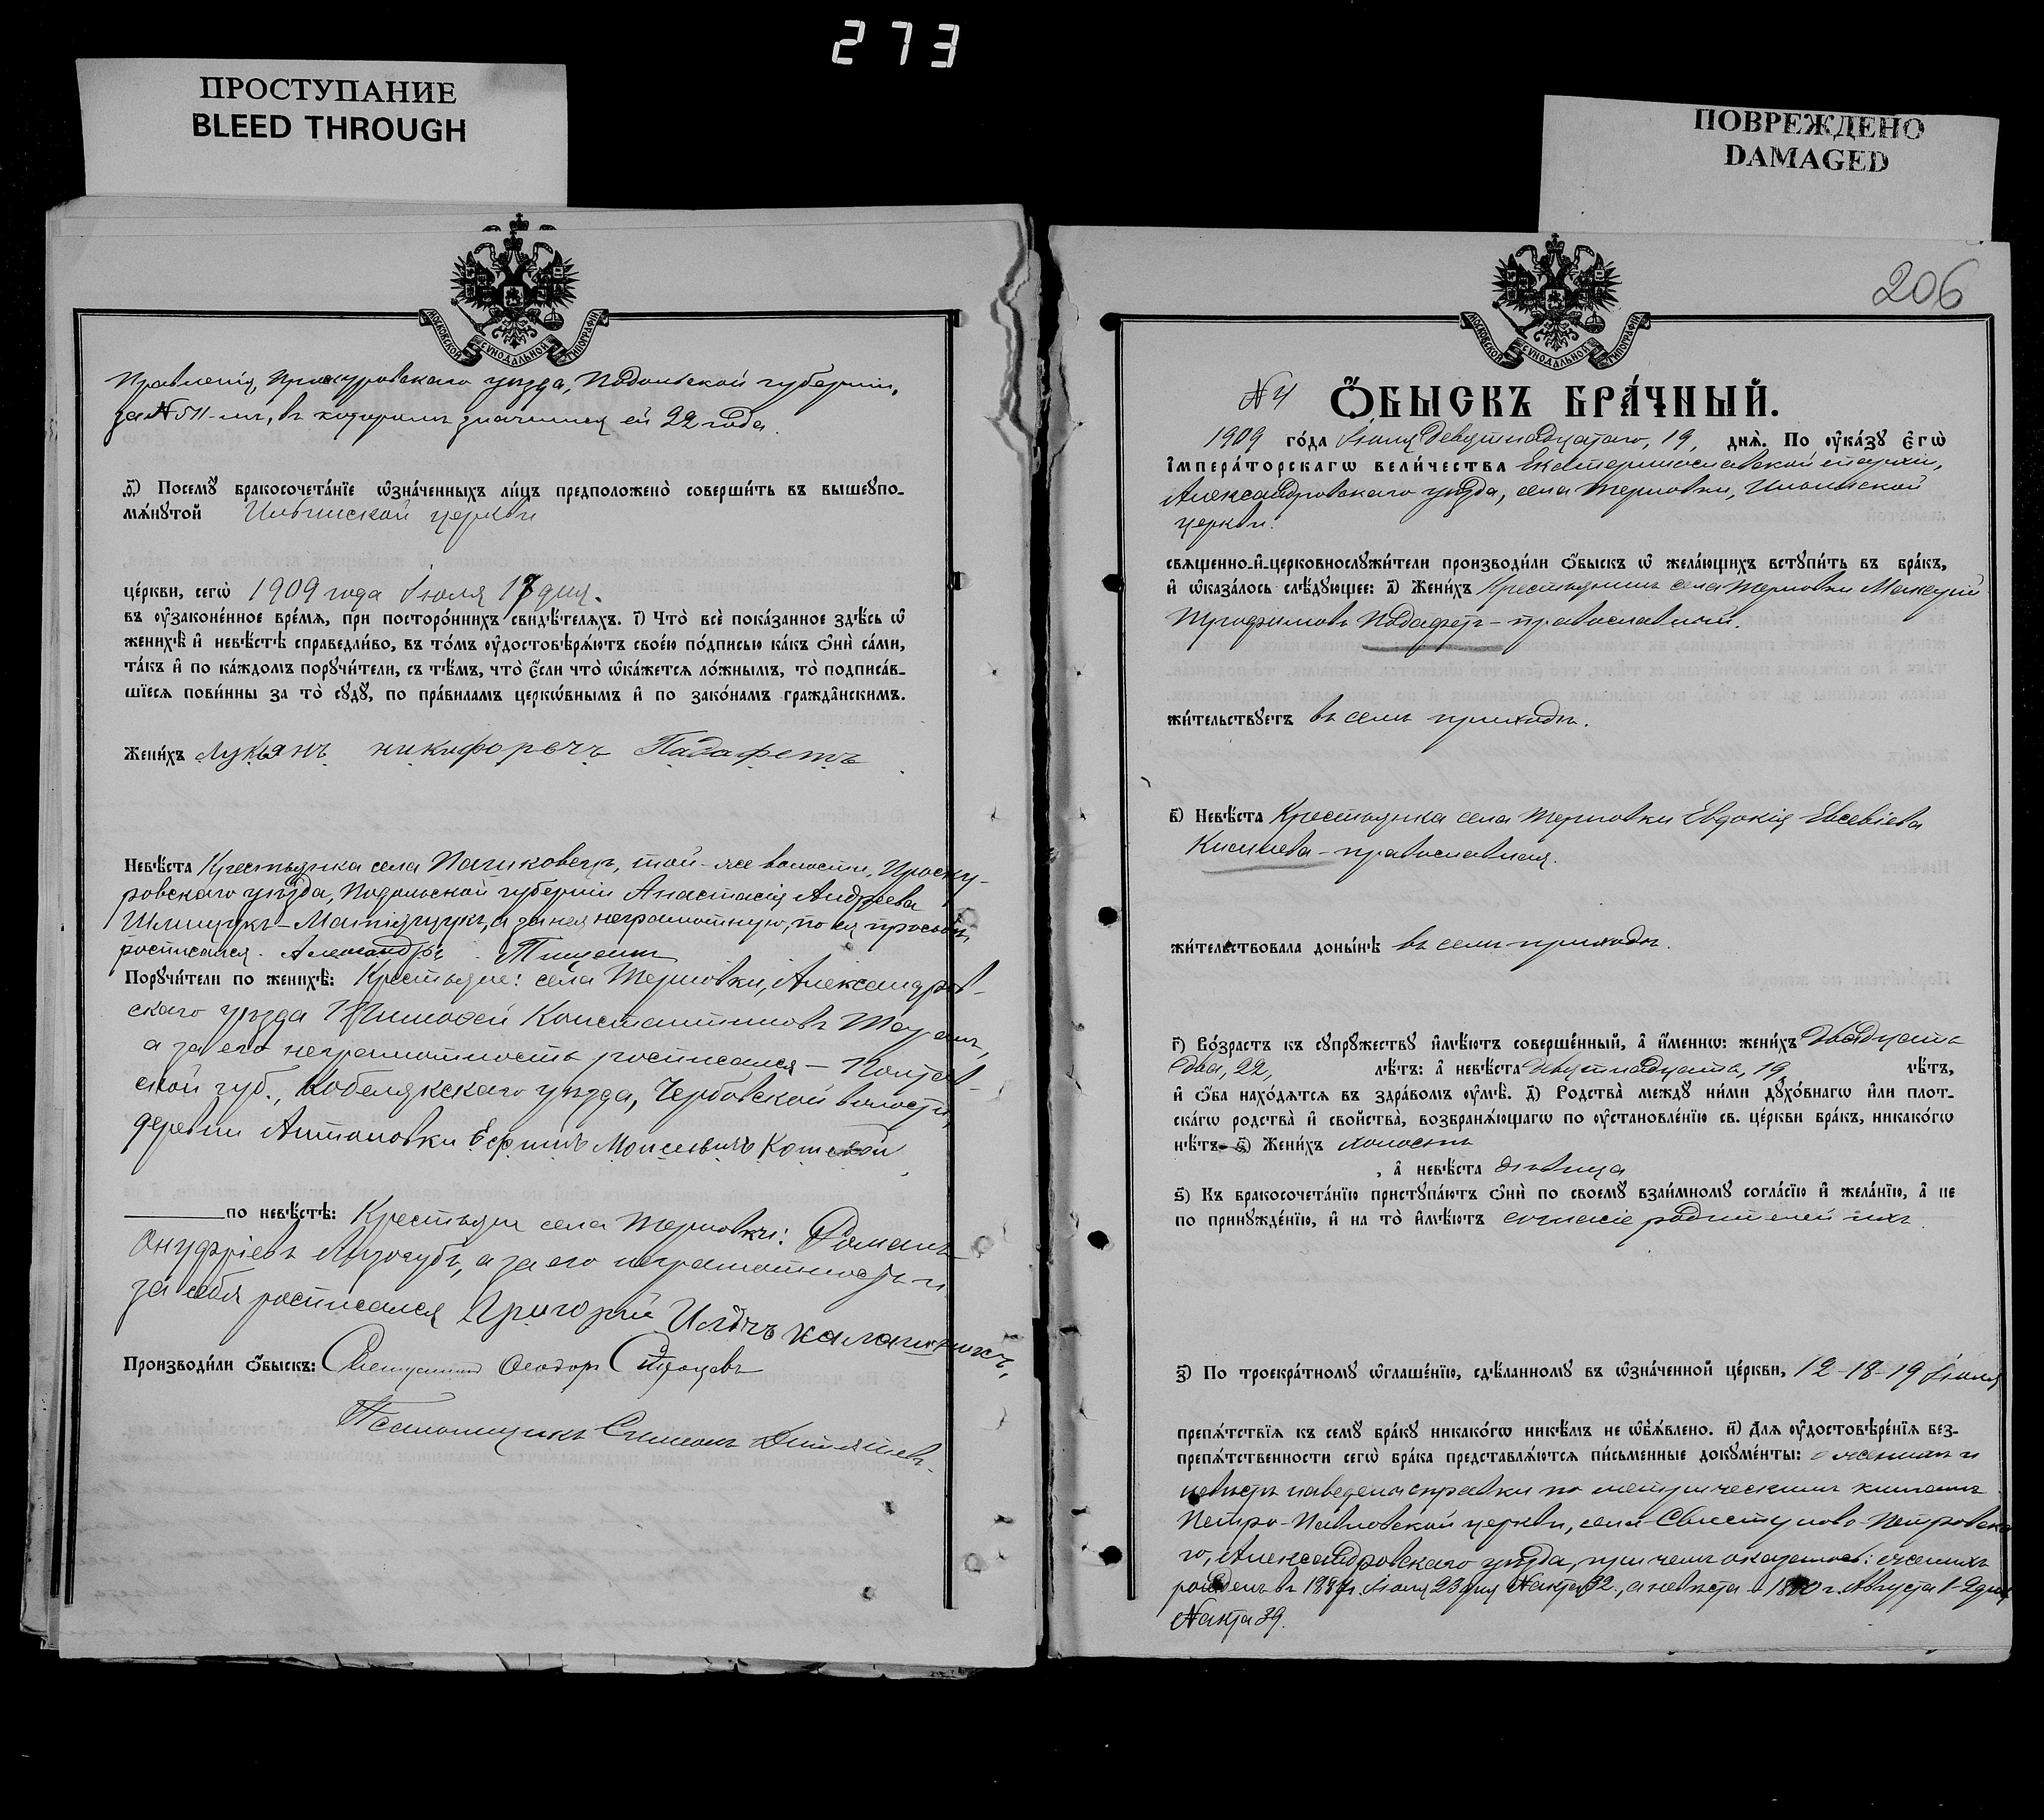 273
ПРОСТУПАНИЕ
BLEED THROUGH
ПОВРЕЖДЕНО
DAMAGED
МОСКОВСКОЙ СѴНОДАЛЬНОЙ ТИПОГРАФІИ
Правленія, Проскуровскаго уѣзда, Подольской губерніи,
за №511-мъ, въ которомъ значится ей 22 года.
д҃) Посемꙋ бракосочета́нїе ѡ҆зна́ченныхъ ли́цъ предположено̀ соверши́ть въ вышеꙋпо-
мѧ́нꙋтой Ильинской церкви
це́ркви, сегѡ̀ 1909 года Іюля 17 дня.
въ ᲂу҆зако́ненное вре́мѧ, при посторо́ннихъ свидѣ́телѧхъ. і҃) Что̀ всѐ пока́занное здѣ́сь ѡ҆
женихѣ̀ и҆ невѣ́стѣ справедли́во, въ то́мъ ᲂу҆достовѣрѧ́ютъ свое́ю по́дписью ка́къ ѻ҆нѝ са́ми,
та́къ и҆ по ка́ждомъ порꙋчи́тели, съ тѣ́мъ, что̀ є҆́сли что̀ ѡ҆ка́жетсѧ ло́жнымъ, то̀ подписа́в-
шїесѧ пови́нны за то̀ сꙋдꙋ̀, по пра́виламъ церкѡ́внымъ и҆ по зако́намъ гражда̂нскимъ.
Жени́хъ Лукьянъ никифоречъ Падафетъ
Невѣ́ста Крестьянка села Пашковецъ, той-же волости, Проску-
ровскаго уѣзда, Подольской губерніи Анастасія Андреева
а за нея неграмотную, по ея просьбѣ,
росписался. Александръ
Порꙋчи́тели по женихѣ̀: Крестьяне: села Терновки, Александров-
скаго уѣзда Тимофей Константиновъ
а за его неграмотность росписался – Полтав-
ской губ., Кобелякскаго уѣзда, волости,
деревни Антоновки Ефимъ Моисеевичъ
по невѣ́стѣ: Крестьяне села Терновки: Романъ
Онуфріевъ Лизогубъ, а за его неграмотность и
за себя росписался Григорій
Производи́ли ѻ҆́быскъ: Священникъ Ѳеодоръ
Псаломщикъ Симеонъ
206
№ 4 Ѻ҆́БЫСКЪ БРА́ЧНЫЙ.
1909 го́да Іюля Девятнадцатаго, 19, днѧ̀. По ᲂу҆ка́зꙋ є҆гѡ̀
і҆мпера́торскагѡ вели́чества Екатеринославской епархіи,
Александровскаго уѣзда, села Терновки, Ильинской
церкви.
свѧщенно-и҆-церковнослꙋжи́тели производи́ли ѻ҆́быскъ ѡ҆ жела́ющихъ встꙋпи́ть въ бра́къ,
и҆ ѡ҆каза́лось слѣ́дꙋющее: а҃) Жени́хъ Крестьянинъ села Терновки
Трофимовъ Подафетъ – православный.
жи́тельствꙋетъ въ семъ приходѣ.
в҃) Невѣ́ста Крестьянка села Терновки Евдокія Евсевіева
Кислева – православная.
жи́тельствовала доны́нѣ въ семъ приходѣ.
г҃) Во́зрастъ къ сꙋпрꙋ́жествꙋ и҆мѣ́ютъ соверше́нный, а҆ и҆́меннѡ: жени́хъ Двадцать
два, 22, лѣ́тъ: а҆ невѣ́ста девятнадцать, 19 лѣ́тъ,
и҆ ѻ҆́ба нахо́дѧтсѧ въ здра́вомъ ᲂу҆мѣ̀. д҃) Родства̀ междꙋ̀ ни́ми дꙋхо́внагѡ и҆лѝ плот-
ска́гѡ родства̀ и҆ сво́йства, возбранѧ́ющагѡ по ᲂу҆становле́нїю св. це́ркви бра́къ, никако́гѡ
нѣ́тъ. є҃) Жени́хъ холостъ
, а҆ невѣ́ста дѣвица
ѕ҃) Къ бракосочета́нїю пристꙋпа́ютъ ѻ҆нѝ по своемꙋ̀ взаи́мномꙋ согла́сїю и҆ жела́нїю, а҆ не
по принꙋжде́нїю, и҆ на то̀ и҆мѣ́ютъ согласіе родителей ихъ.
з҃) По троекра́тномꙋ ѡ҆глаше́нїю, сдѣ́ланномꙋ въ ѡ҆зна́ченной це́ркви, 12-18-19 Іюля
препѧ́тствїѧ къ семꙋ̀ бра́кꙋ никако́гѡ никѣ́мъ не ѡ҆б̾ѧ́влено. и҃) Длѧ ᲂу҆достовѣре́нїѧ без-
препѧ́тственности сегѡ̀ бра́ка представлѧ́ютсѧ пи́сьменные докꙋме́нты: о женихѣ и
невѣстѣ наведены справки по метрическимъ книгамъ
Петро-Павловской церкви, села Свистуново-Петровска-
го, Александровскаго уѣзда, при чемъ оказалось: женихъ
рожденъ въ 1887 г. Іюня 23 дня № акта 32, а невѣста – г. Августа 1-2 дня
№ акта 39.